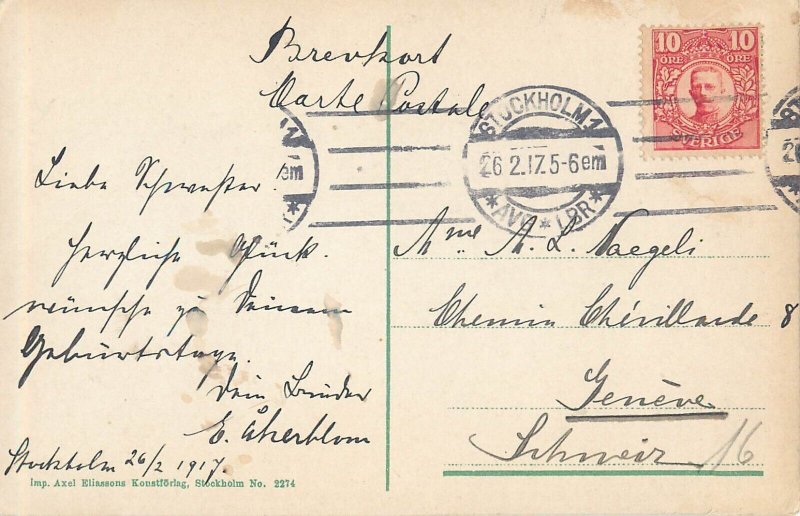 Brevkort
Carte Postale
10 10
ÖRE ÖRE
SVERIGE
STOCKHOLM 1
26 2.17.5-6 em
*AVG*LBR*
em
Liebe Schwester!
Herzliche Glück-
wünsche zu Deinem
Geburtstage.
Dein Bruder
E. Åkerblom
Stockholm 26/2 1917.
Mme A. L. Naegeli
Chemin Chévillarde 8
Genève
Schweiz 16
Imp. Axel Eliassons Konstförlag, Stockholm No. 2274